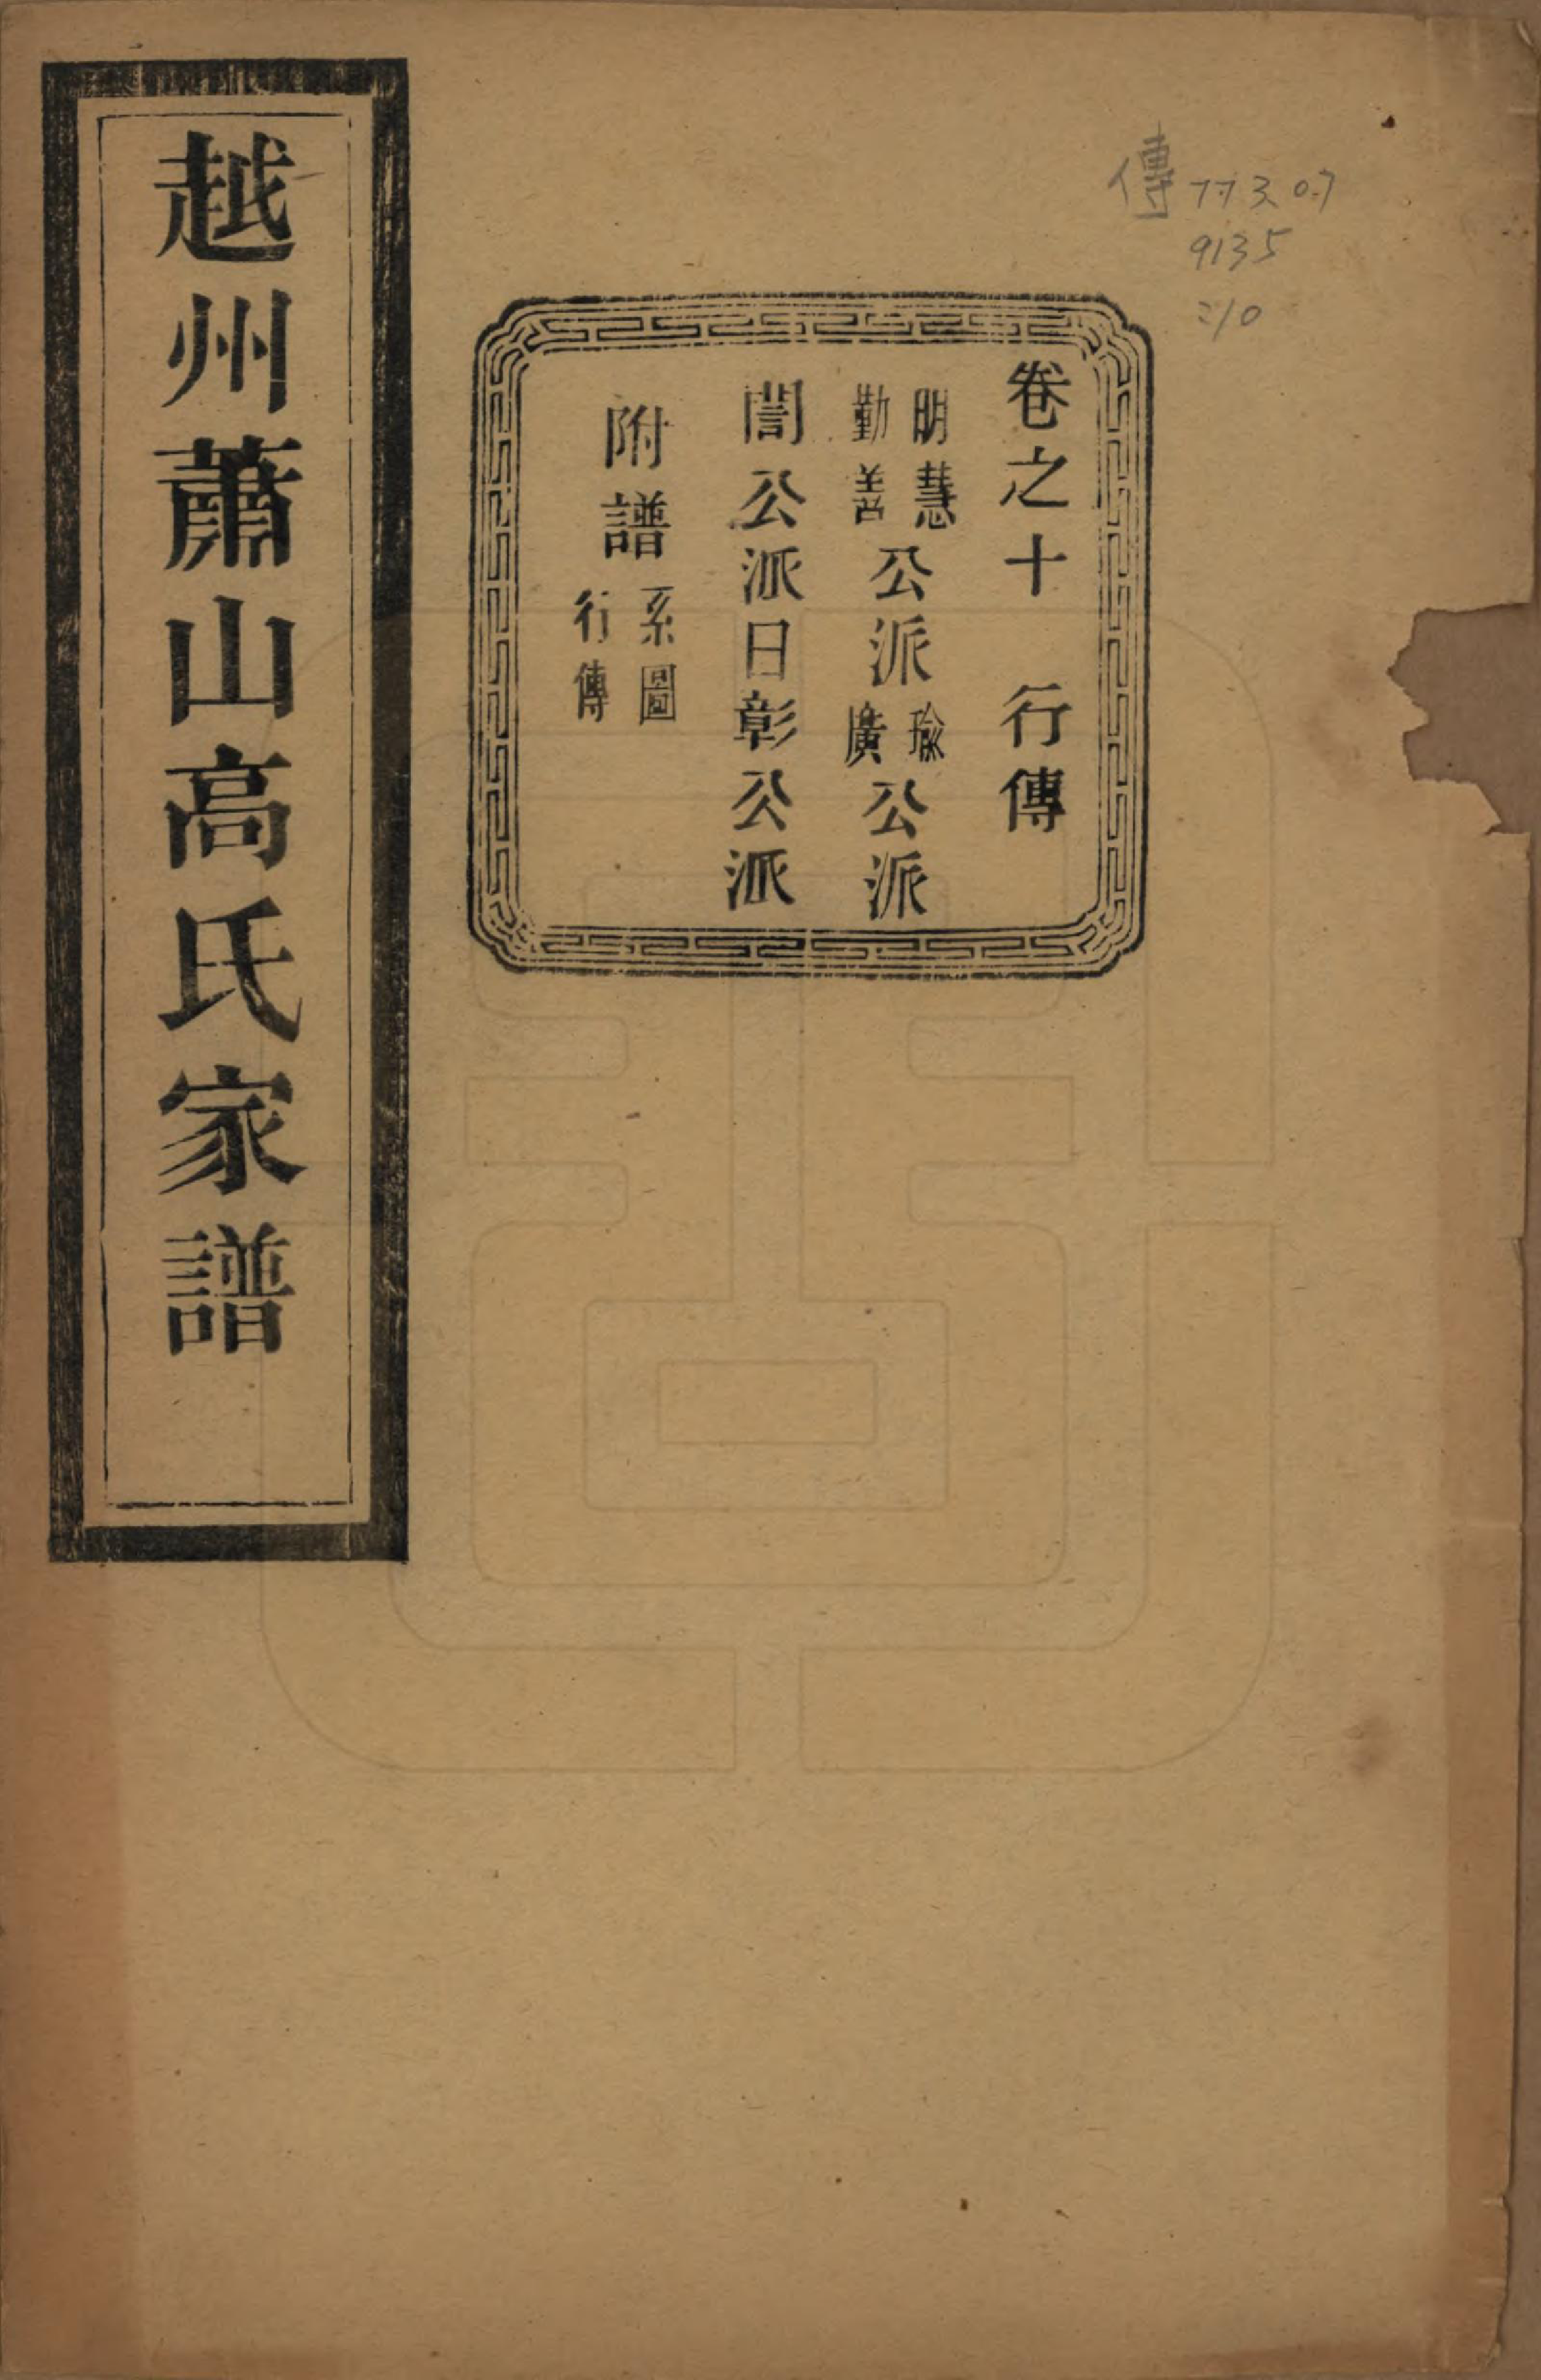 傳 773.07
9135
:10
卷之十 行傳
明慧勤善公派瑜廣公派
誾公派日彰公派
附譜系圖行傳
越州蕭山高氏家譜